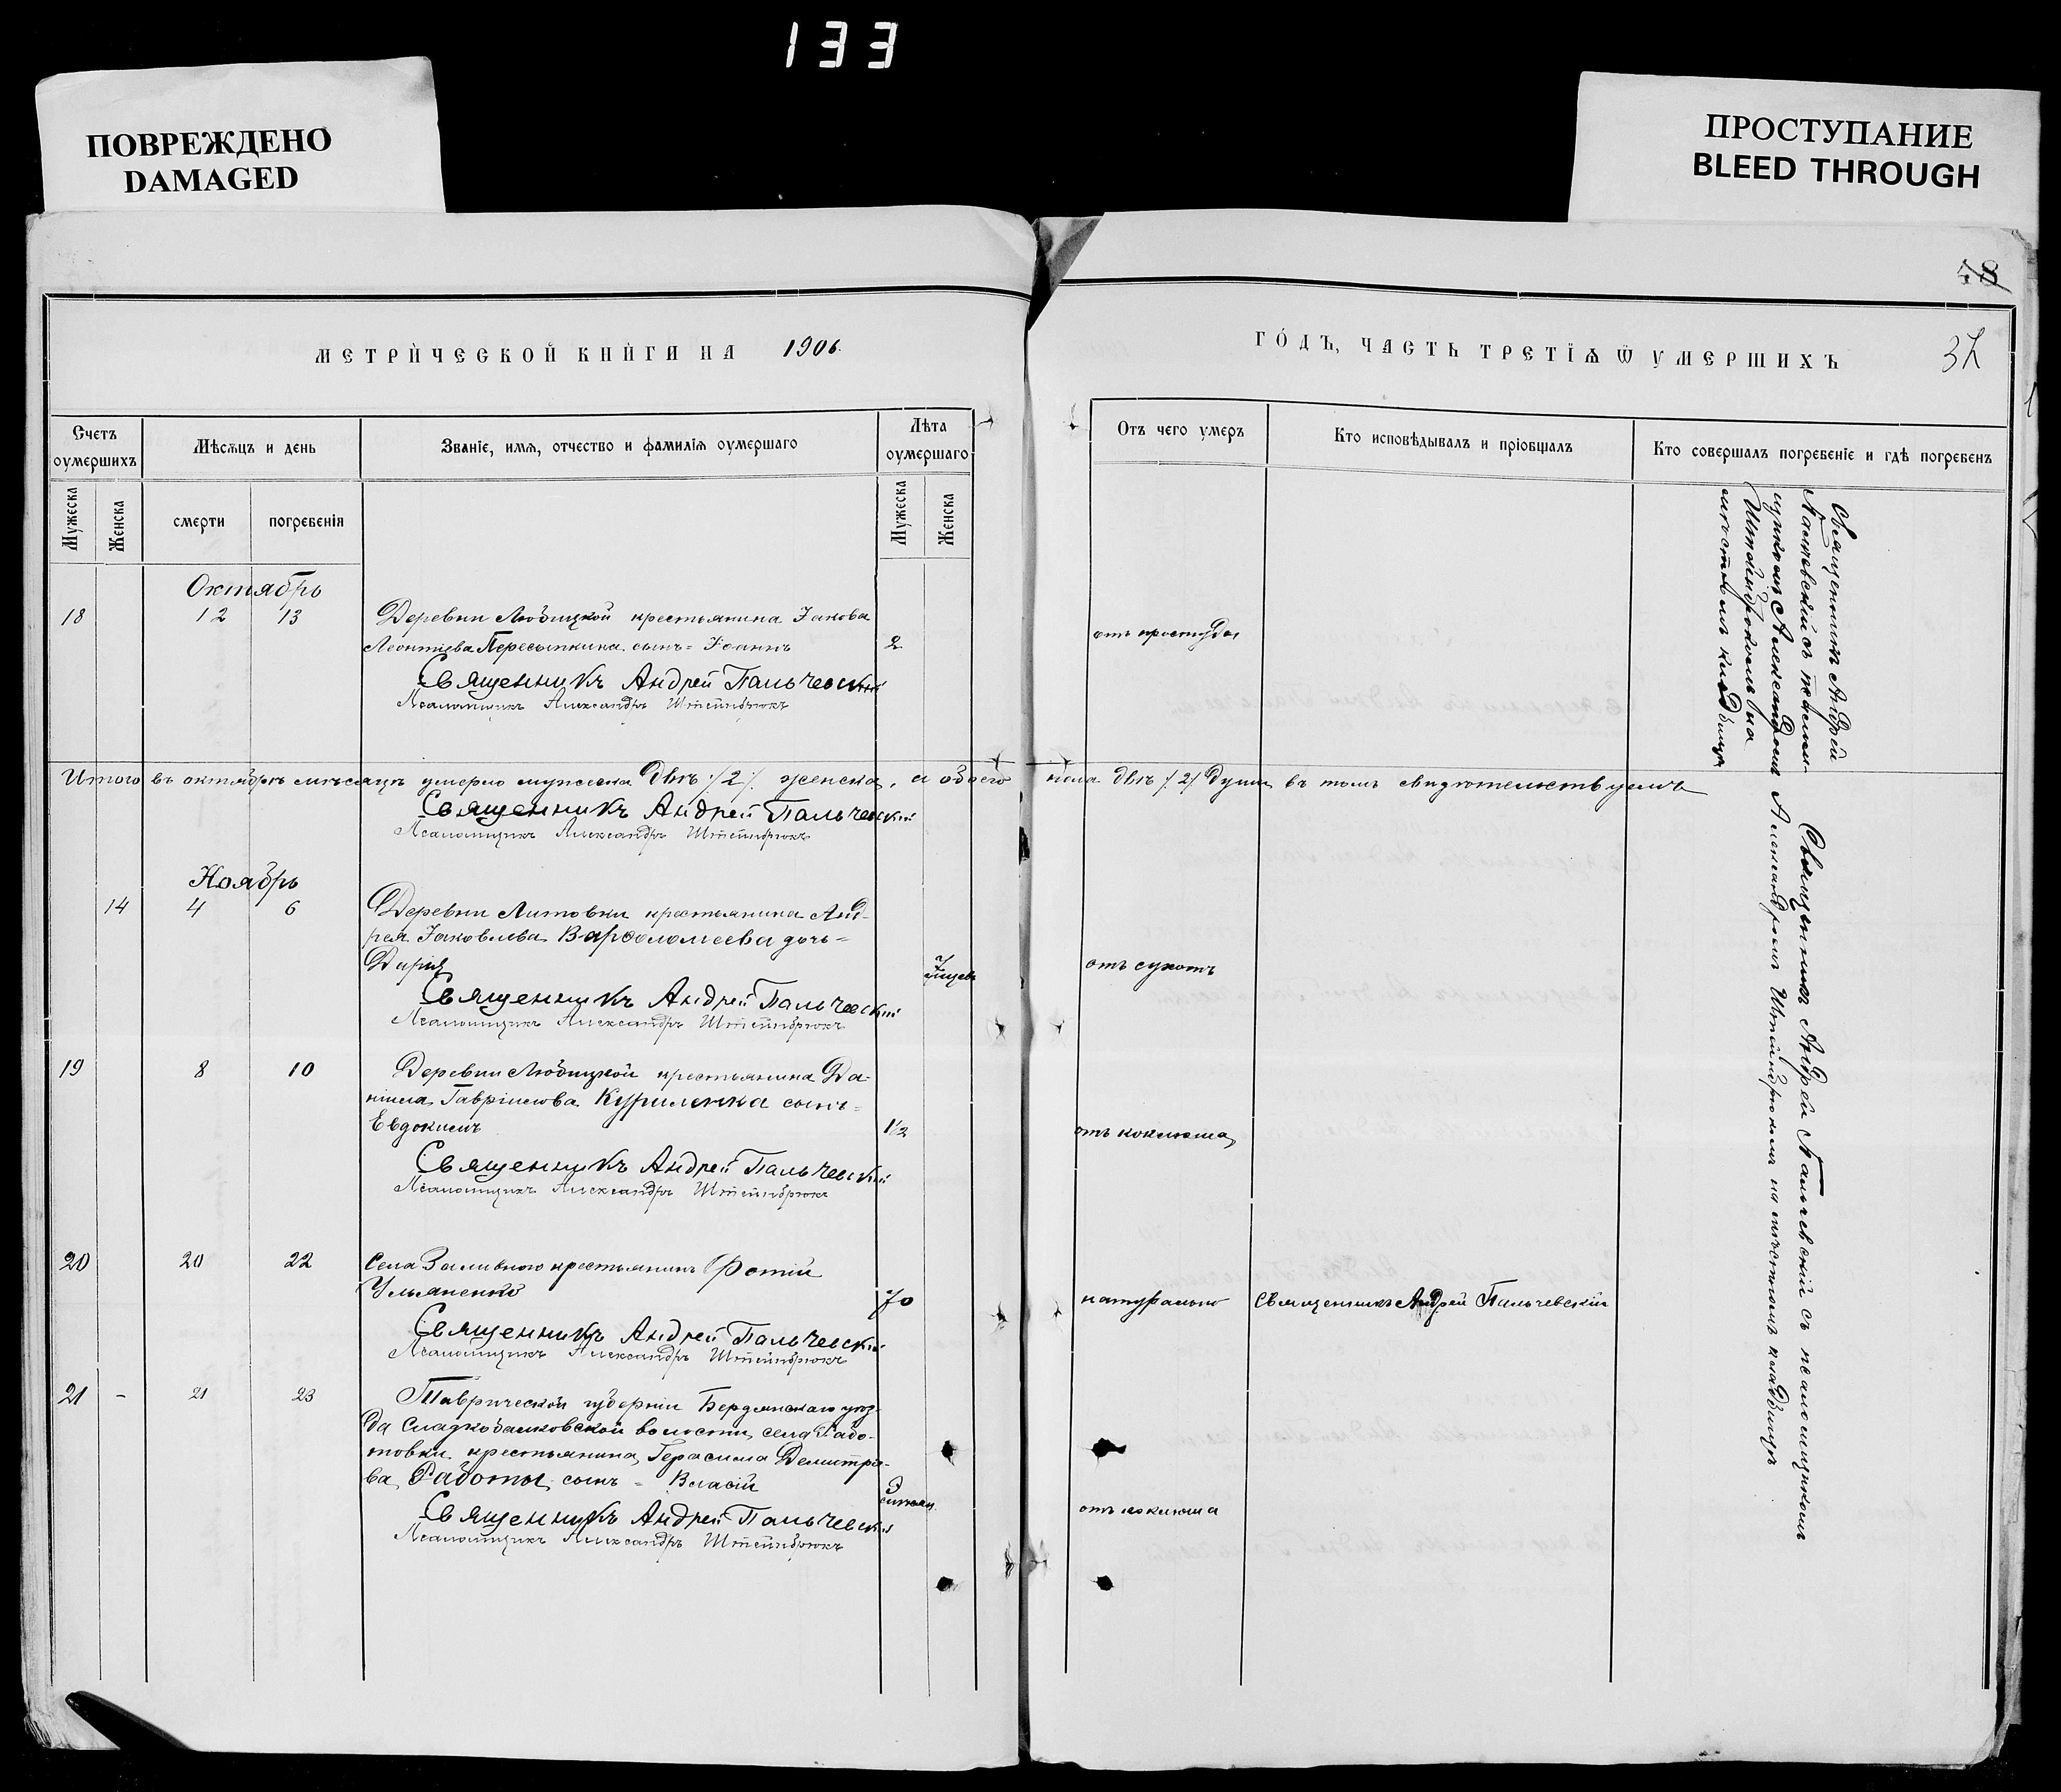 133
ПОВРЕЖДЕНО
DAMAGED
ПРОСТУПАНИЕ
BLEED THROUGH
48
МЕТРИЧЕСКОЙ КНИГИ НА 1906.
ГОДЪ, ЧАСТЬ ТРЕТІѦ Ѿ УМЕРШИХЪ
37
Счетъ
оумершихъ
Мѣсѧцъ и день
Званіе, имѧ, отчество и фамиліѧ оумершаго
Лѣта
оумершаго
Мужеска
Женска
смерти
погребеніѧ
Мужеска
Женска
Отъ чего умеръ
Кто исповѣдывалъ и пріобщалъ
Кто совершалъ погребеніе и гдѣ погребенъ
Октябрь
18 12 13 Деревни Любицкой крестьянина Іакова
Леонтіева Пересыпкина сынъ = Іоаннъ 2 отъ простуды
Священникъ Андрей Пальчевскій
Псаломщикъ Александръ Штейнбрюкъ
Священникъ Андрей
Пальчевскій съ псалом-
щикомъ Александромъ
Штейнбрюкомъ на
мѣстномъ кладбищѣ
Итого въ октябрѣ мѣсяцѣ умерло мужеска двѣ /2/. женска, а обоего пола двѣ /2/ души въ томъ свидѣтельствуемъ
Священникъ Андрей Пальчевскій
Псаломщикъ Александръ Штейнбрюкъ
Ноябрь
14 4 6 Деревни Литовки крестьянина Анд-
рея Іаковлева Варѳоломеева дочь =
Дарія отъ сухотъ
Священникъ Андрей Пальчевскій
Псаломщикъ Александръ Штейнбрюкъ
19 8 10 Деревни Любицкой крестьянина Да-
ніила Гавріилова Куриленка сынъ =
Евдокимъ 1½ отъ коклюша
Священникъ Андрей Пальчевскій
Псаломщикъ Александръ Штейнбрюкъ
20 20 22 Села Заливного крестьянинъ Фотій
Ульяненко 70 натурально Священникъ Андрей Пальчевскій
Священникъ Андрей Пальчевскій
Псаломщикъ Александръ Штейнбрюкъ
21 - 21 23 Таврической губерніи Бердянскаго уѣз-
да Сладкобалковской волости, села
крестьянина Герасима Димитріе-
ва Работы сынъ = Власій
отъ коклюша
Священникъ Андрей Пальчевскій
Псаломщикъ Александръ Штейнбрюкъ
Священникъ Андрей Пальчевскій съ псаломщикомъ
Александромъ Штейнбрюкомъ на мѣстномъ кладбищѣ